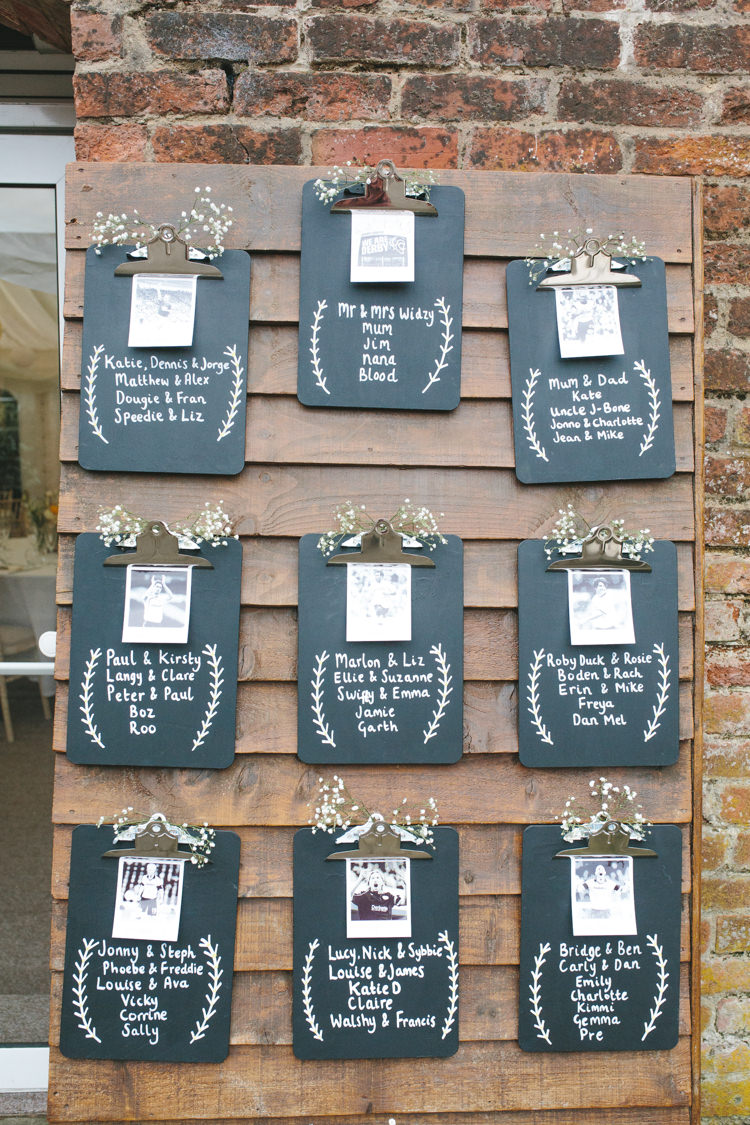 Katie, Dennis & Jorge
Matthew & Alex
Dougie & Fran
Speedie & Liz
WE ARE
DERBY
Mr & Mrs Widzy
Mum
Jim
nana
Blood
Mum & Dad
Kate
Uncle J-Bone
Jonno & Charlotte
Jean & Mike
Paul & Kirsty
Langy & Clare
Peter & Paul
Boz
Roo
Marlon & Liz
Ellie & Suzanne
Swiny & Emma
Jamie
Garth
Roby Duck & Rosie
Boden & Rach
Erin & Mike
Freya
Dan Mel
Jonny & Steph
Phoebe & Freddie
Louise & Ava
Vicky
Corrine
Sally
Lucy, Nick & Sybbie
Louise & James
Katie D
Claire
Walshy & Francis
Bridge & Ben
Carly & Dan
Emily
Charlotte
Kimmi
Gemma
Pre